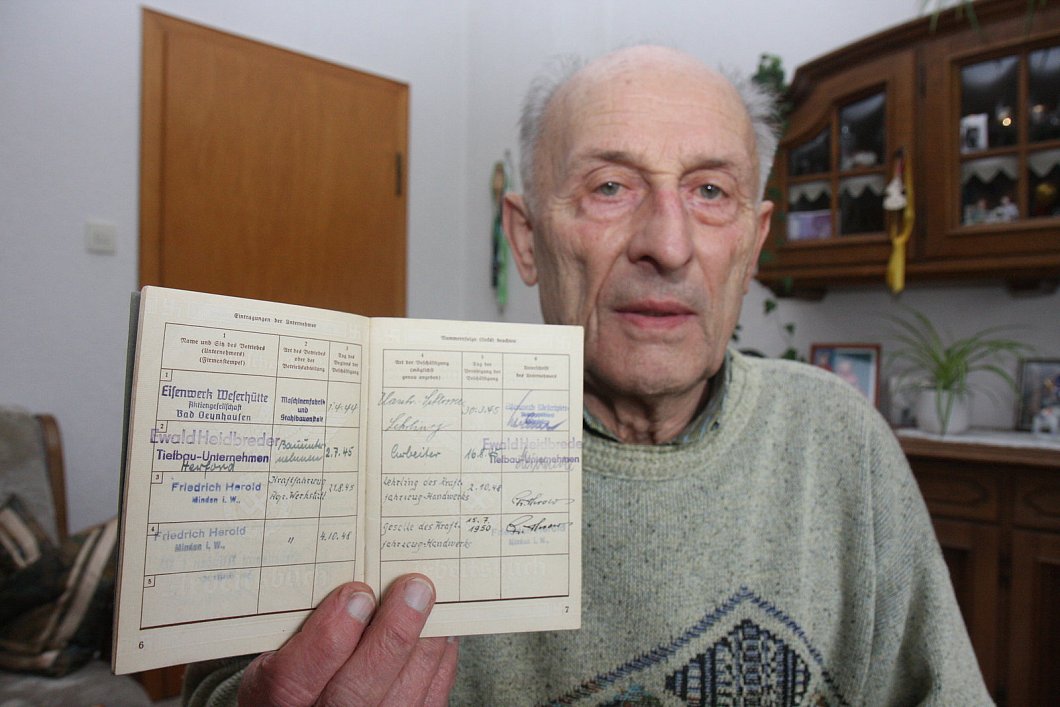 Eintragungen der Unternehmer
1
Name und Sitz des Betriebes
(Unternehmers)
(Firmenstempel)
2
Art des Betriebes
oder der
Betriebsabteilung
3
Tag des
Beginns der
Beschäftigung
1
Eisenwerk Weserhütte
Aktiengesellschaft
Bad Oeynhausen
Maschinenfabrik
und
Stahlbauanstalt
1.4.44
2
Ewald Heidbreder
Tiefbau-Unternehmen
Herford
Bauunter
nehmen
2.7.45
3
Friedrich Herold
Minden i. W.,
Kraftfahrzeug
Rep. Werkstatt
21.8.45
4
Friedrich Herold
Minden i. W.,
"
4.10.48
5
6
Nummernfolge (links) beachten
4
Art der Beschäftigung
(möglichst
genau angeben)
5
Tag der
Beendigung der
Beschäftigung
6
Unterschrift
des Unternehmers
30.3.45
Lehrling
Arbeiter
16.8.45
Ewald Heidbreder
Tiefbau-Unternehmen
Lehrling des Kraft-
fahrzeug-Handwerks
2.10.48
Geselle des Kraft-
fahrzeug-Handwerks
15.7.
1950
Minden i. W.,
7